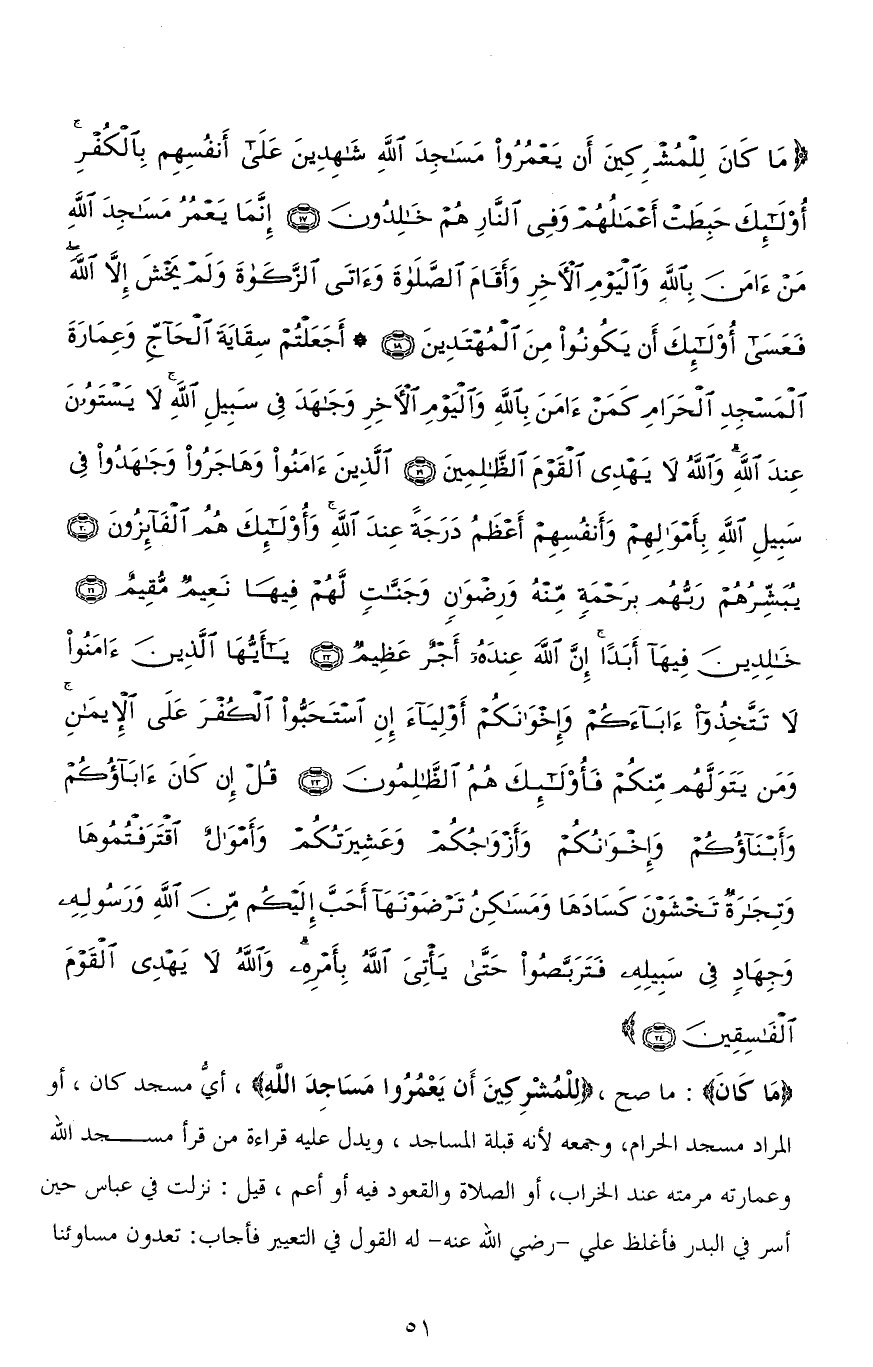 ﴿ مَا كَانَ لِلْمُشْرِكِينَ أَن يَعْمُرُوا۟ مَسَـٰجِدَ ٱللَّهِ شَـٰهِدِينَ عَلَىٰٓ أَنفُسِهِم بِٱلْكُفْرِ ۚ
أُو۟لَـٰٓئِكَ حَبِطَتْ أَعْمَـٰلُهُمْ وَفِى ٱلنَّارِ هُمْ خَـٰلِدُونَ ١٧ إِنَّمَا يَعْمُرُ مَسَـٰجِدَ ٱللَّهِ
مَنْ ءَامَنَ بِٱللَّهِ وَٱلْيَوْمِ ٱلْـَٔاخِرِ وَأَقَامَ ٱلصَّلَوٰةَ وَءَاتَى ٱلزَّكَوٰةَ وَلَمْ يَخْشَ إِلَّا ٱللَّهَ ۖ
فَعَسَىٰٓ أُو۟لَـٰٓئِكَ أَن يَكُونُوا۟ مِنَ ٱلْمُهْتَدِينَ ١٨ * أَجَعَلْتُمْ سِقَايَةَ ٱلْحَآجِّ وَعِمَارَةَ
ٱلْمَسْجِدِ ٱلْحَرَامِ كَمَنْ ءَامَنَ بِٱللَّهِ وَٱلْيَوْمِ ٱلْـَٔاخِرِ وَجَـٰهَدَ فِى سَبِيلِ ٱللَّهِ ۚ لَا يَسْتَوُۥنَ
عِندَ ٱللَّهِ ۗ وَٱللَّهُ لَا يَهْدِى ٱلْقَوْمَ ٱلظَّـٰلِمِينَ ١٩ ٱلَّذِينَ ءَامَنُوا۟ وَهَاجَرُوا۟ وَجَـٰهَدُوا۟ فِى
سَبِيلِ ٱللَّهِ بِأَمْوَٰلِهِمْ وَأَنفُسِهِمْ أَعْظَمُ دَرَجَةً عِندَ ٱللَّهِ ۚ وَأُو۟لَـٰٓئِكَ هُمُ ٱلْفَآئِزُونَ ٢٠
يُبَشِّرُهُمْ رَبُّهُم بِرَحْمَةٍ مِّنْهُ وَرِضْوَٰنٍ وَجَنَّـٰتٍ لَّهُمْ فِيهَا نَعِيمٌ مُّقِيمٌ ٢١
خَـٰلِدِينَ فِيهَآ أَبَدًا ۚ إِنَّ ٱللَّهَ عِندَهُۥٓ أَجْرٌ عَظِيمٌ ٢٢ يَـٰٓأَيُّهَا ٱلَّذِينَ ءَامَنُوا۟
لَا تَتَّخِذُوٓا۟ ءَابَآءَكُمْ وَإِخْوَٰنَكُمْ أَوْلِيَآءَ إِنِ ٱسْتَحَبُّوا۟ ٱلْكُفْرَ عَلَى ٱلْإِيمَـٰنِ ۚ
وَمَن يَتَوَلَّهُم مِّنكُمْ فَأُو۟لَـٰٓئِكَ هُمُ ٱلظَّـٰلِمُونَ ٢٣ قُلْ إِن كَانَ ءَابَآؤُكُمْ
وَأَبْنَآؤُكُمْ وَإِخْوَٰنُكُمْ وَأَزْوَٰجُكُمْ وَعَشِيرَتُكُمْ وَأَمْوَٰلٌ ٱقْتَرَفْتُمُوهَا
وَتِجَـٰرَةٌ تَخْشَوْنَ كَسَادَهَا وَمَسَـٰكِنُ تَرْضَوْنَهَآ أَحَبَّ إِلَيْكُم مِّنَ ٱللَّهِ وَرَسُولِهِۦ
وَجِهَادٍ فِى سَبِيلِهِۦ فَتَرَبَّصُوا۟ حَتَّىٰ يَأْتِىَ ٱللَّهُ بِأَمْرِهِۦ ۗ وَٱللَّهُ لَا يَهْدِى ٱلْقَوْمَ
ٱلْفَـٰسِقِينَ ٢٤ ﴾
﴿مَا كَانَ﴾ : ما صح ، ﴿لِلْمُشْرِكِينَ أَن يَعْمُرُوا مَسَاجِدَ اللَّهِ﴾ ، أيُّ مسجد كان ، أو
المراد مسجد الحرام، وجمعه لأنه قبلة المساجد ، ويدل عليه قراءة من قرأ مســجد الله
وعمارته مرمته عند الخراب، أو الصلاة والقعود فيه أو أعم ، قيل : نزلت في عباس حين
أسر في البدر فأغلظ علي -رضي الله عنه- له القول في التعيير فأجاب: تعدون مساوئنا
٥١